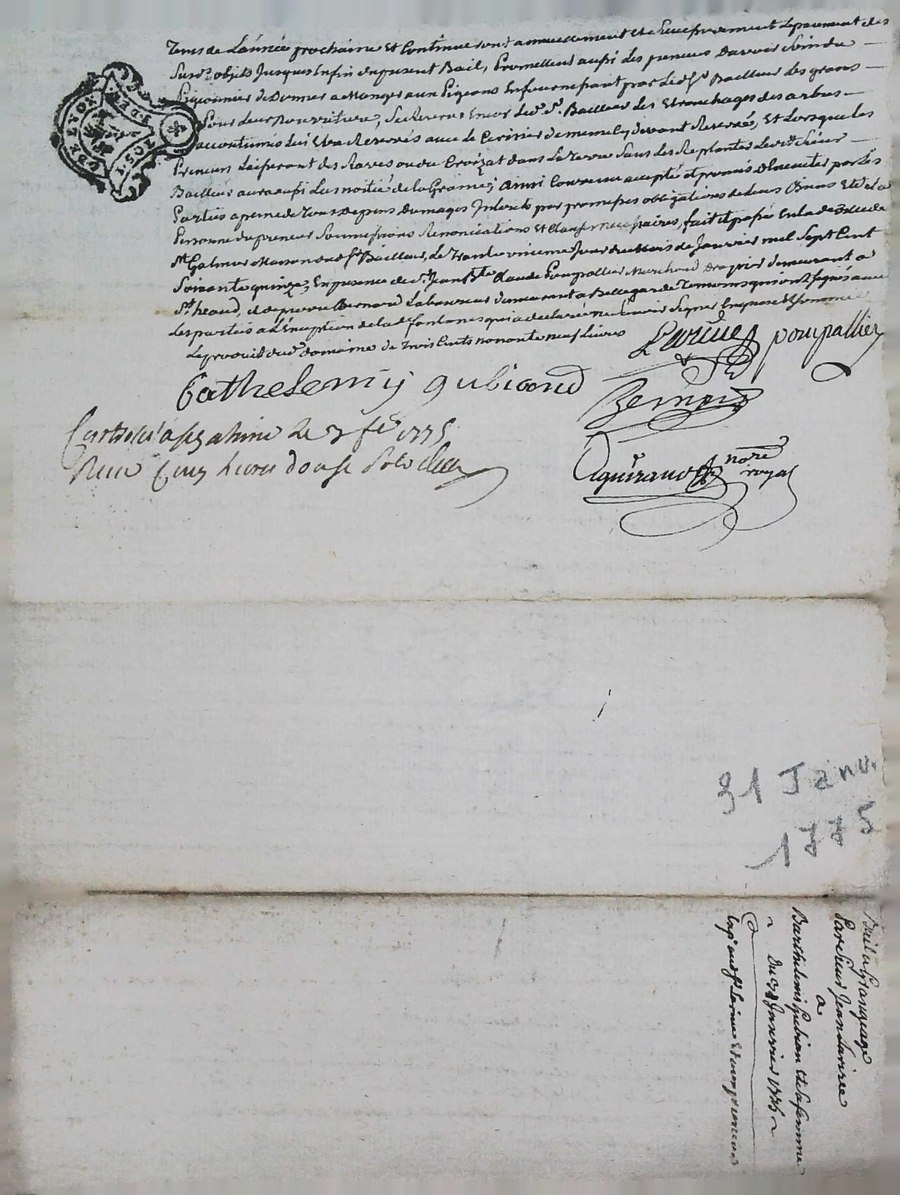 Jours de L'année prochaine et Continueront annuellement et sucessivement Le payement des
Susd. objets Jusques Enfin du present Bail, Promettent aussi Les preneurs D'avoir Soin du
Pigeonnier de Donner a Manger aux Pigeons En fournissant par led. Sr. Bailleur Les grains
Pour Leur Nourriture, Se Reserve Encor led. Sr. Bailleur Les Etronchages des arbres
accoutumés d'Etre Reservés avec le Cerisier de meme Cy devant Reservés, Et Lorsque les
Preneurs Laisseront des Raves ou du Croizat dans La terre Sans Les Replanter Led. Sieur
Bailleur aura aussi La moitié de la Graine, Ainsi Convenu accepté et promis observer par les
Parties a peine de Tous Depens Dommages Interets par promesses obligations de leurs Biens Et de La
Personne du preneur Soumissions Renonciations et Clauses necessaires, fait et passé En la
St. Galmier Maison dud. Sr. Bailleur, Le Trente unieme Jour du Mois de Janvier mil Sept Cent
Soixante quinze, En presence de Sr. Jean Bte. Claude Poupallier Marchand Drapier demeurant a
St. heand, et de pierre Bernard Laboureur demeurant a Bellegarde Temoins qui ont Signés avec
Les parties a L'Exception de lad. fontanes qui a declaré ne Sçavoir Signer Enquise Et Sommée
Le produit dud. domaine de trois Cents nonante neuf Livres
Larivee poupallier
Barthelemÿ gubiand
Bernard
Controllé a St galmier Le 7 fev. 1775
Reçu Cinq livres douze sols
nore
royal
DE LYON
31 Janv.
1775
Bail a Grangeage
Par Sieur Jean Larivée
a
Barthelemi Gubian et sa femme
Du 31 Janvier 1775